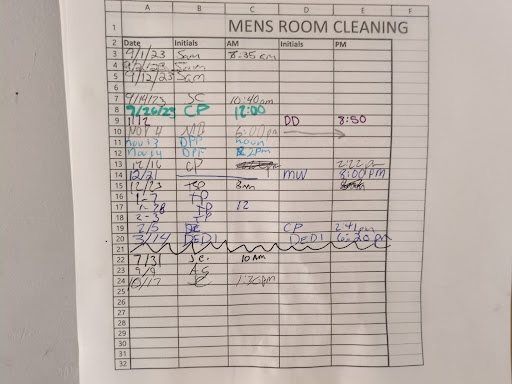 A B C D E F
1 MENS ROOM CLEANING
2 Date Initials AM Initials PM
3 9/1/23 Sam 8:35 am
4 Sam
5 9/12/23 Sam
6
7 9/19/23 SC 10:40am
8 9/26/23 CP 12:00
9 11/2 DD 8:50
10 NOV 4 6:00pm
11 Nov 13 DPT noon
12 Nov 14 DPT 2pm
13 12/16 CP
14 12/21 MW 8:00pm
15 12/23 8am
16 TP
17 1-28 TP 12
18 2-3 TP
19 2/5 CP 2:41pm
20 3/14 DEDI DEDI 6:20 pm
21
22 7/31 J.C. 10 AM
23 9/9 AG
24 10/17
25
26
27
28
29
30
31
32